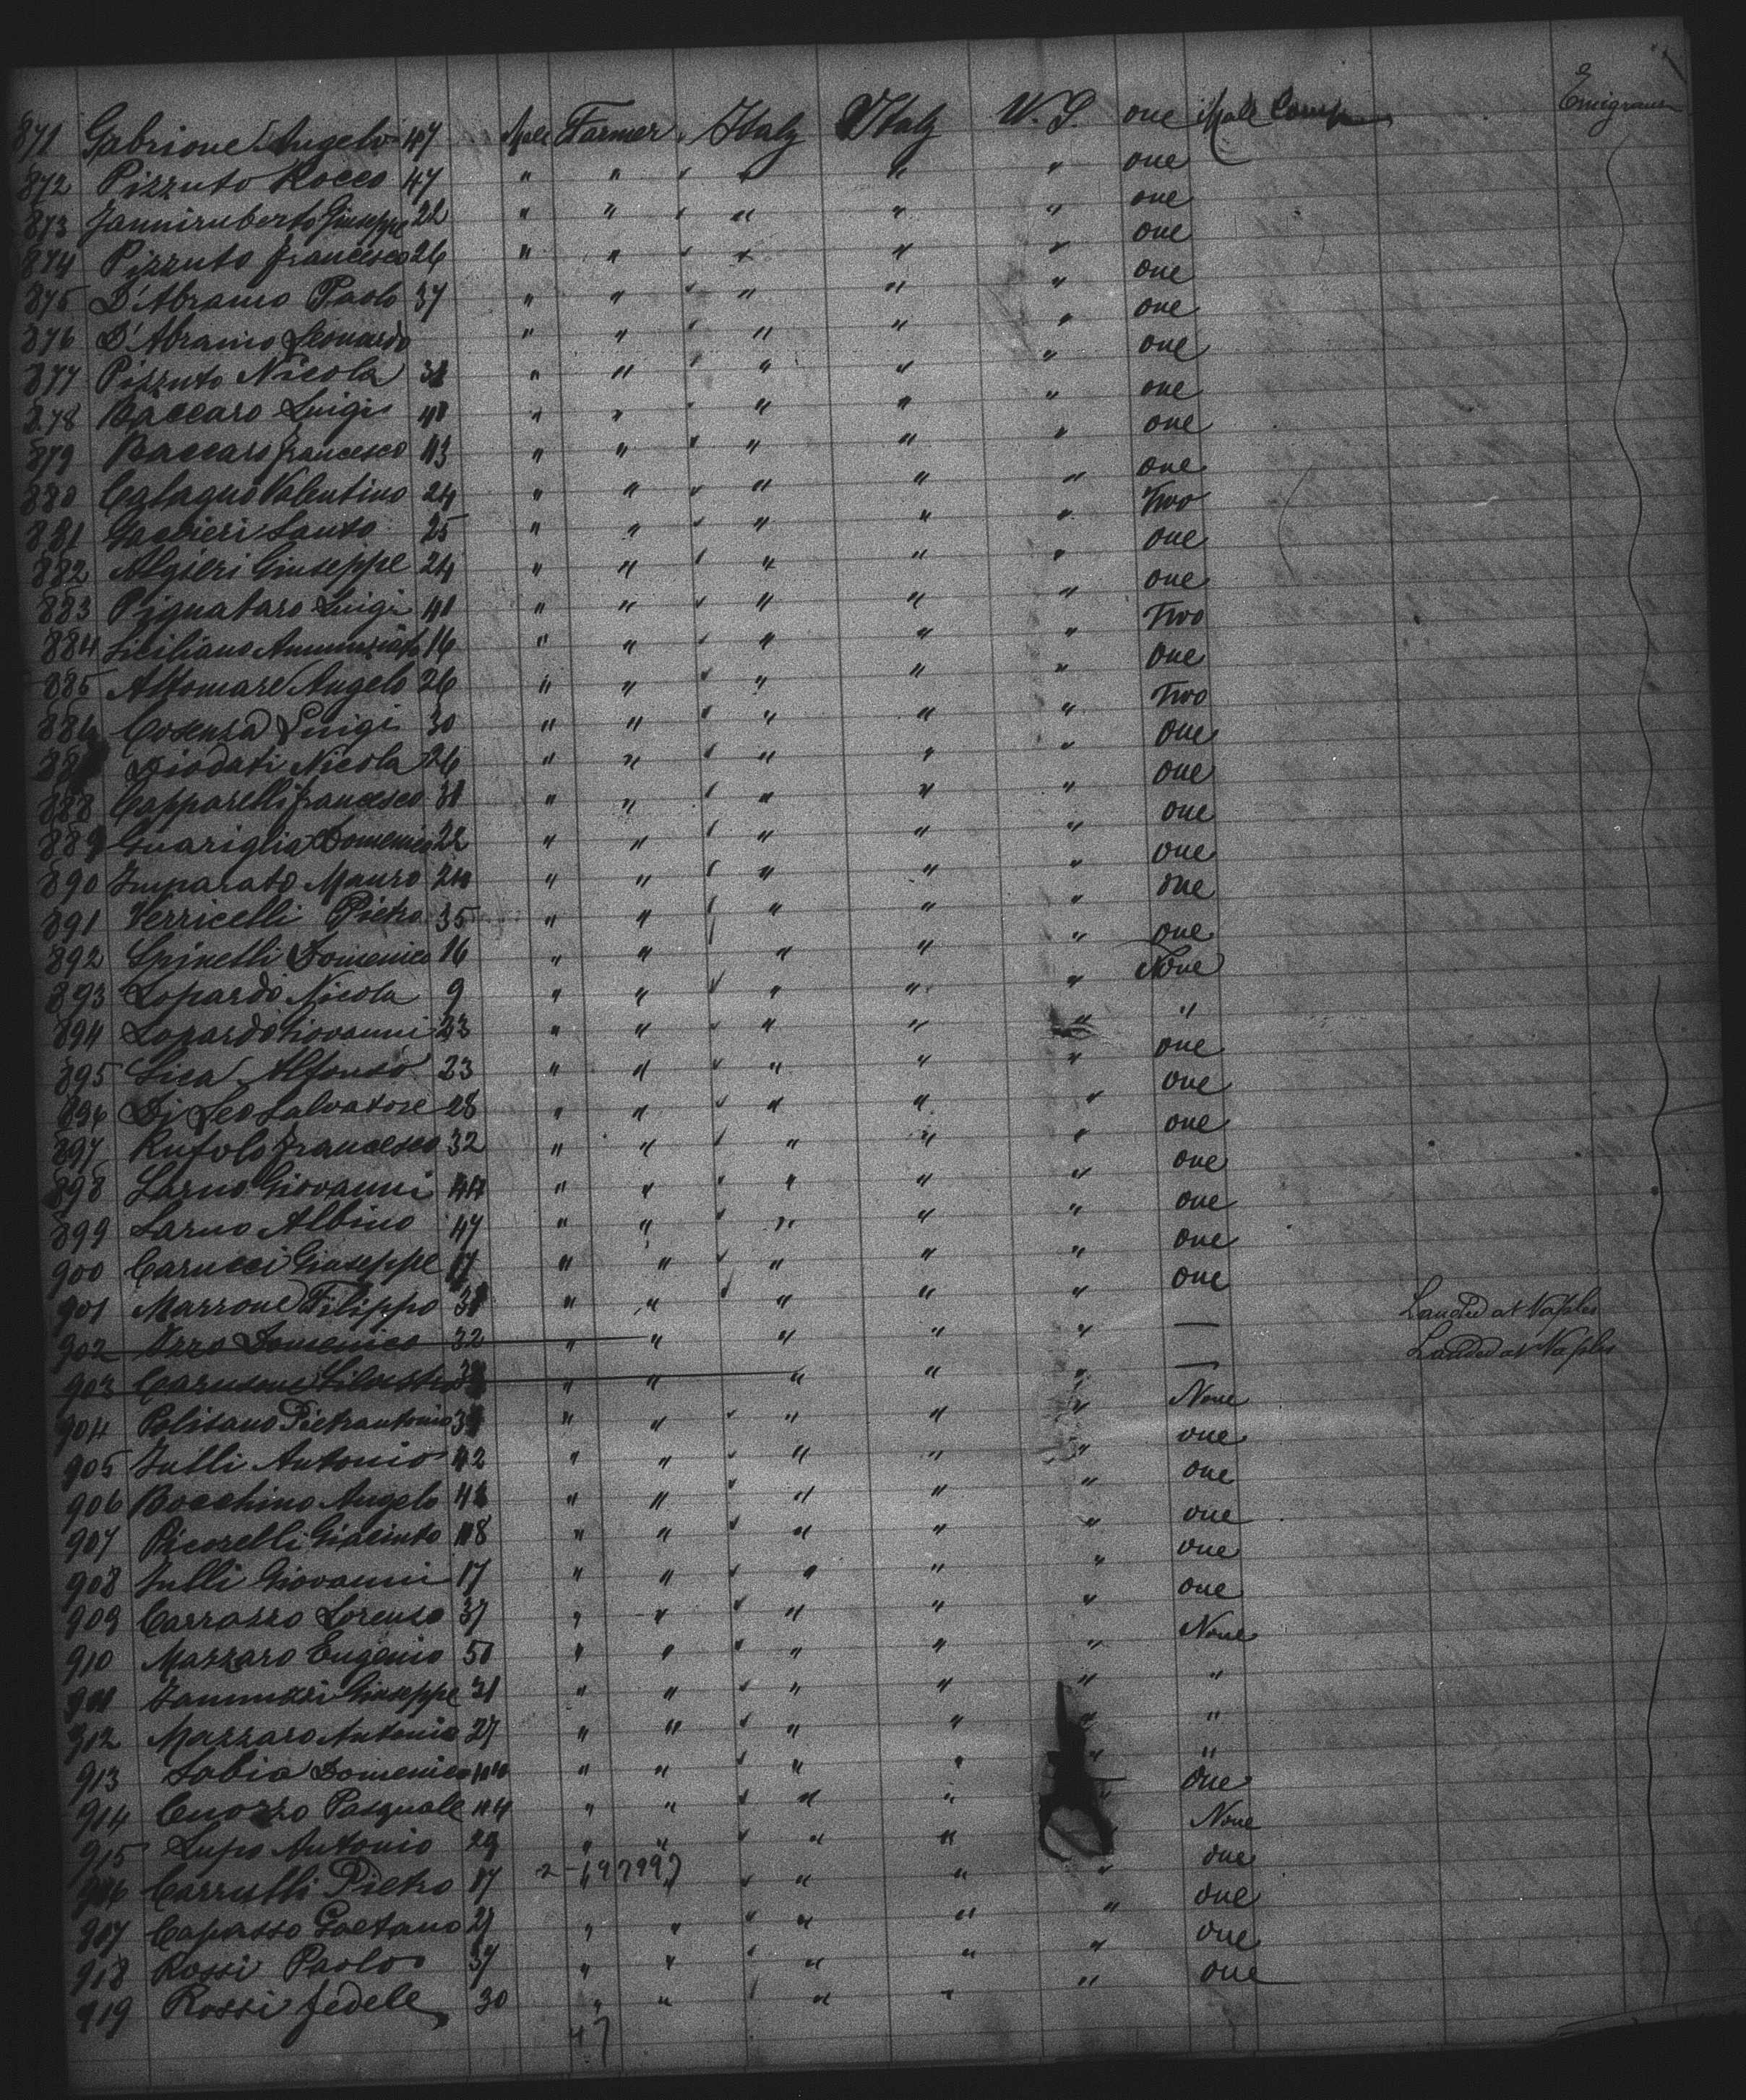 871 Gabrione Angelo 47 Male Farmer Italy Italy U.S. one Male Comp Emigrant
872 Pizzuto Rocco 47 " " " " " one
873 Janniruberto Giuseppe 22 " " " " " one
874 Pizzuto Francesco 26 " " " " " one
875 D'Abramo Paolo 37 " " " " " one
876 D'Abramo Leonardo " " " " " one
877 Pizzuto Nicola " " " " " one
878 Baccaro Luigi " " " " " one
879 Baccaro Francesco 43 " " " " " one
880 Valentino 24 " " " " " one
881 Santo 25 " " " " " Two
882 Algieri Giuseppe 24 " " " " " one
883 Pignataro Luigi " " " " " one
884 Siciliano Annunziato 16 " " " " " Two
885 Altomare Angelo 26 " " " " " one
886 Cosenza Luigi 30 " " " " " Two
887 Diodati Nicola 26 " " " " " one
888 Capparelli Francesco 31 " " " " " one
889 Guariglia Domenico 22 " " " " " one
890 Imparato Mauro 24 " " " " " one
891 Verricelli Pietro 35 " " " " " one
892 Spinelli Domenico 16 " " " " " one
893 Lopardo Nicola 9 " " " " " None
894 Lopardo Giovanni 23 " " " " " "
895 Lisa Alfonso 23 " " " " " one
896 Di Leo Salvatore 28 " " " " " one
897 Rufolo Francesco 32 " " " " " one
898 Sarno Giovanni 44 " " " " " one
899 Sarno Albino 47 " " " " " one
900 Carucci Giuseppe 17 " " " " " one
901 Marrone Filippo " " " " " one
902 Domenico 32 " " " " " — Landed at Naples
903 Carusone " " " " " — Landed at Naples
904 Politano Pietrantonio " " " " " None
905 Julli Antonio 42 " " " " " one
906 Bocchino Angelo " " " " " one
907 Picorelli Giacinto 18 " " " " " one
908 Julli Giovanni 17 " " " " " one
909 Carrazzo Lorenzo 37 " " " " " one
910 Mazzaro Eugenio 50 " " " " " None
911 Jannuzzi Giuseppe 31 " " " " " "
912 Mazzaro Antonio 27 " " " " " "
913 Sabia Domenico " " " " " "
914 Cuozzo Pasquale 44 " " " " " one
915 Lupo Antonio 29 " " " " " None
916 Carrulli Pietro 17 2-197997 " " " one
917 Capasso Gaetano 27 " " " " " one
918 Rossi Paolo 37 " " " " " one
919 Rossi Fedele 30 " " " " " one
47